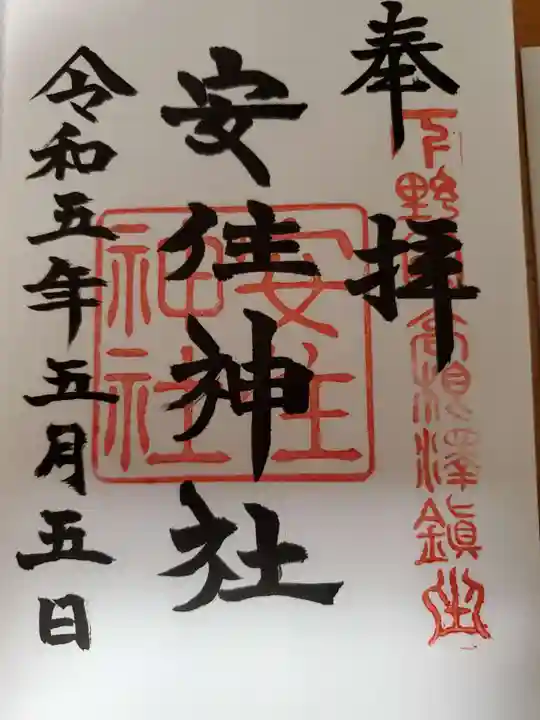 奉拝
下野國高根澤鎮座
安住神社
安住神社
令和五年五月五日